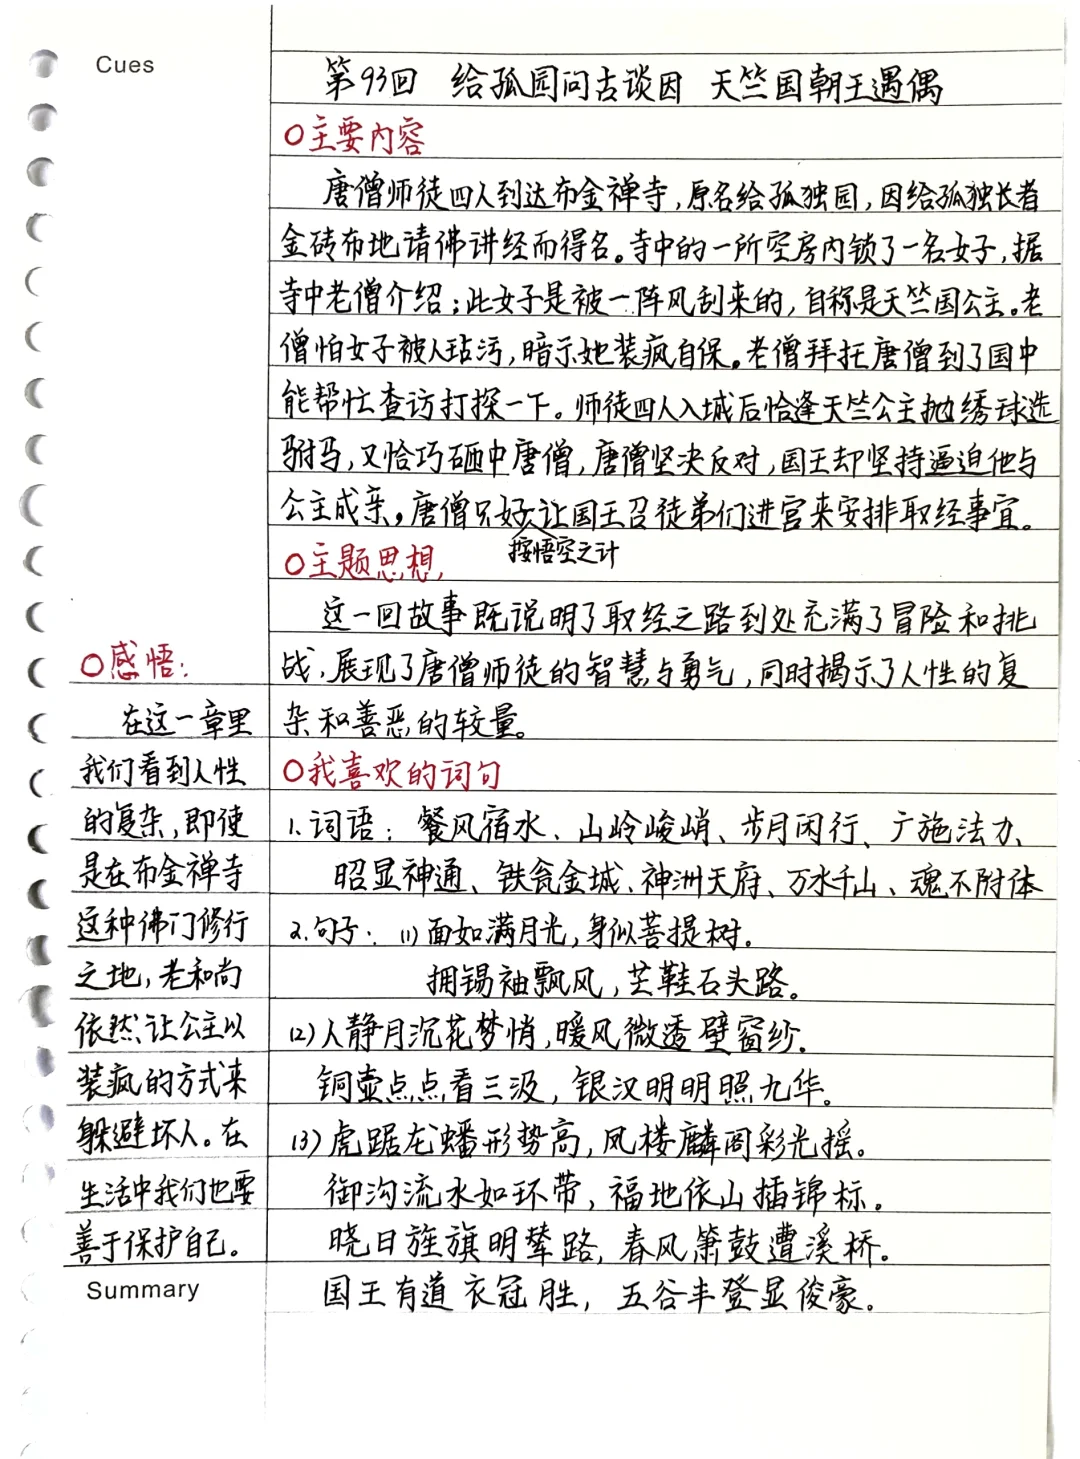 Cues
第93回 给孤园问古谈因 天竺国朝王遇偶
○主要内容
唐僧师徒四人到达布金禅寺,原名给孤独园,因给孤独长者
金砖布地请佛讲经而得名。寺中的一所空房内锁了一名女子,据
寺中老僧介绍:此女子是被一阵风刮来的,自称是天竺国公主。老
僧怕女子被人玷污,暗示她装疯自保。老僧拜托唐僧到了国中
能帮忙查访打探一下。师徒四人入城后恰逢天竺公主抛绣球选
驸马,又恰巧砸中唐僧,唐僧坚决反对,国王却坚持逼迫他与
公主成亲。唐僧只好让国王召徒弟们进宫来安排取经事宜。
按悟空之计
○主题思想
这一回故事既说明了取经之路到处充满了冒险和挑
战,展现了唐僧师徒的智慧与勇气,同时揭示了人性的复
杂和善恶的较量。
○我喜欢的词句
1.词语: 餐风宿水、山岭峻峭、步月闲行、广施法力、
昭显神通、铁瓮金城、神洲天府、万水千山、魂不附体
2.句子: (1)面如满月光,身似菩提树。
拥锡袖飘风,芒鞋石头路。
(2)人静月沉花梦悄,暖风微透壁窗纱.
铜壶点点看三汲,银汉明明照九华。
(3)虎踞龙蟠形势高,凤楼麟阁彩光摇。
御沟流水如环带,福地依山插锦标。
晓日旌旗明辇路,春风箫鼓遭溪桥。
国王有道衣冠胜,五谷丰登显俊豪。
○感悟:
在这一章里
我们看到人性
的复杂,即使
是在布金禅寺
这种佛门修行
之地,老和尚
依然让公主以
装疯的方式来
躲避坏人。在
生活中我们也要
善于保护自己。
Summary